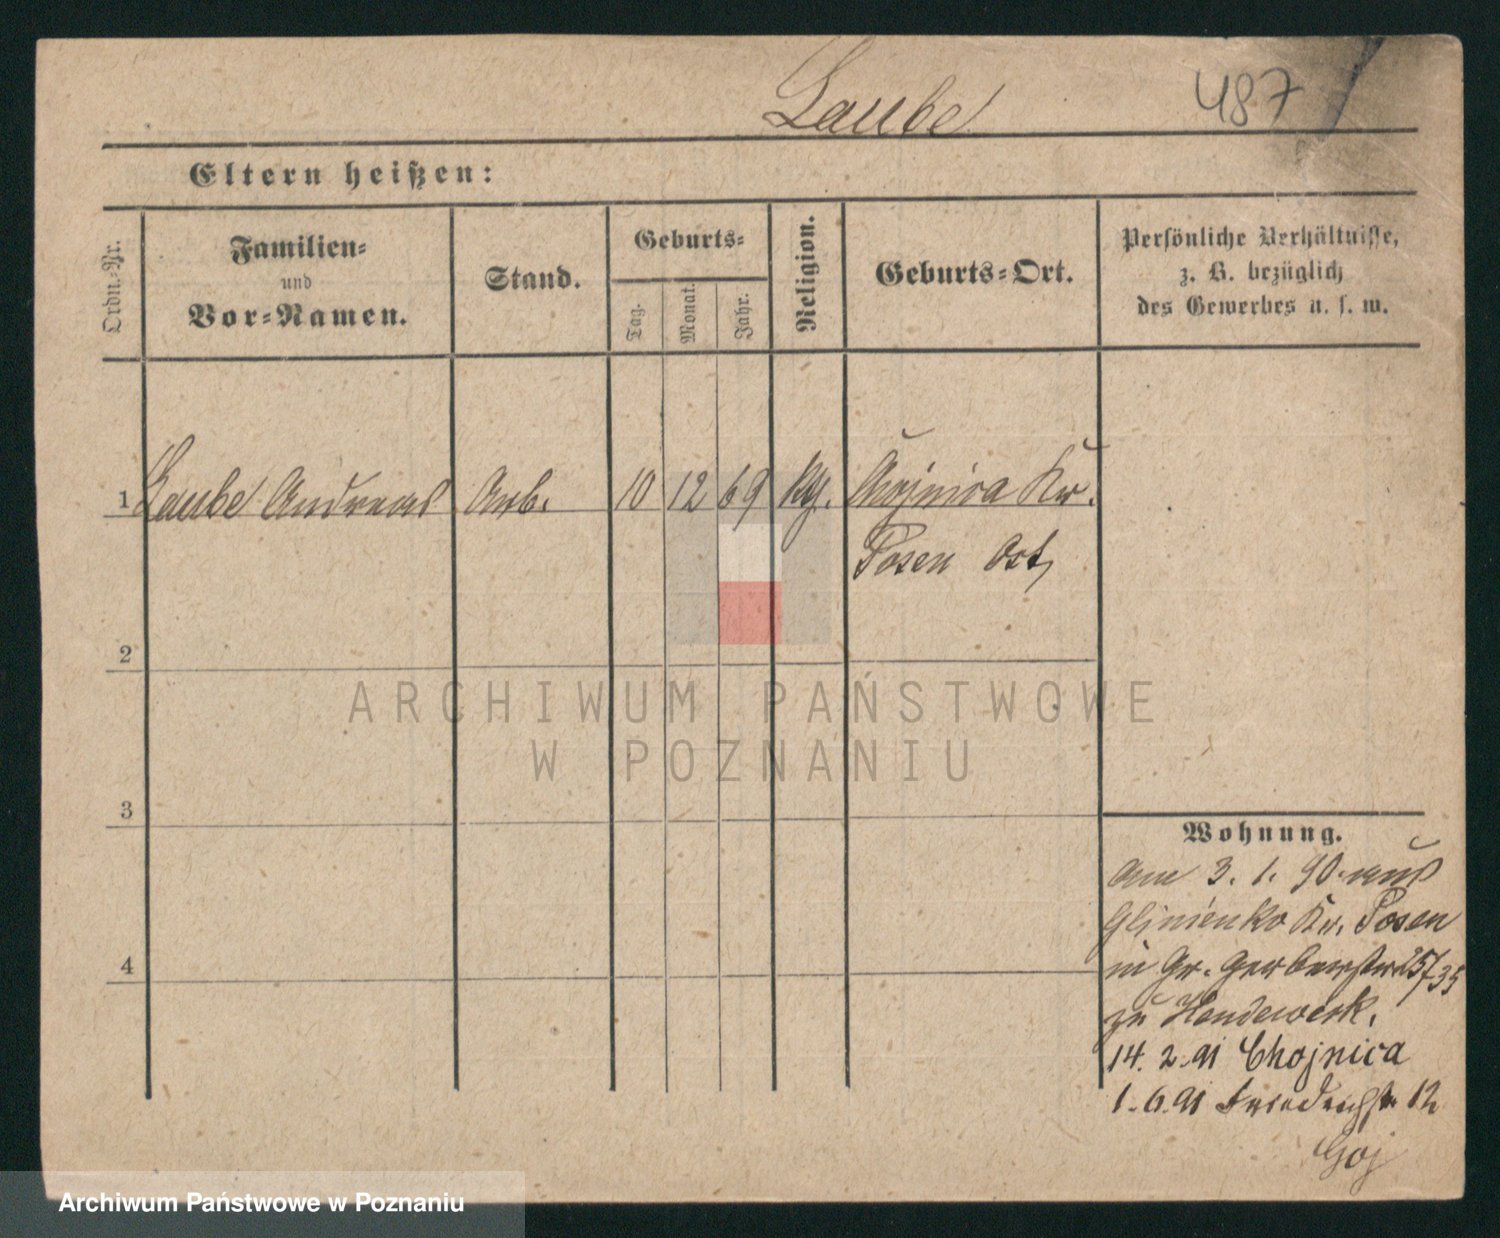 Laube 487
Eltern heißen:
Ordn.-Nr.
Familien-
und
Vor-Namen.
Stand.
Geburts-
Tag.
Monat.
Jahr.
Religion.
Geburts-Ort.
Persönliche Verhältnisse,
z. B. bezüglich
des Gewerbes u. s. w.
1 Laube Andreas Arb. 10 12 69 Chojnica Kr.
Posen Ost,
2
3
4
Wohnung.
3. 1. 90. aus
Glinienko Kr. Posen
in Gr. Gerberstr 35
zu Handewerk.
14. 2. 91 Chojnica
1. 6. 91 Friedrichstr 12
Goj
ARCHIWUM PAŃSTWOWE
W POZNANIU
Archiwum Państwowe w Poznaniu